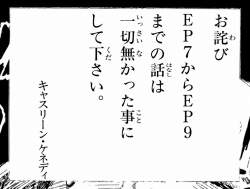 お詫び
EP7からEP9
までの話は
一切無かった事に
して下さい。
キャスリーン・ケネディ